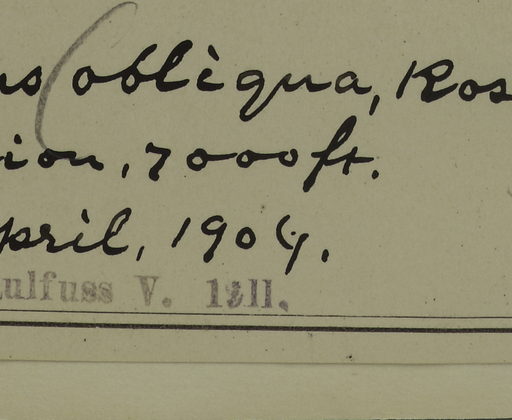 obliqua, Ros
ion, 7000 ft.
pril, 1904.
ulfuss V.